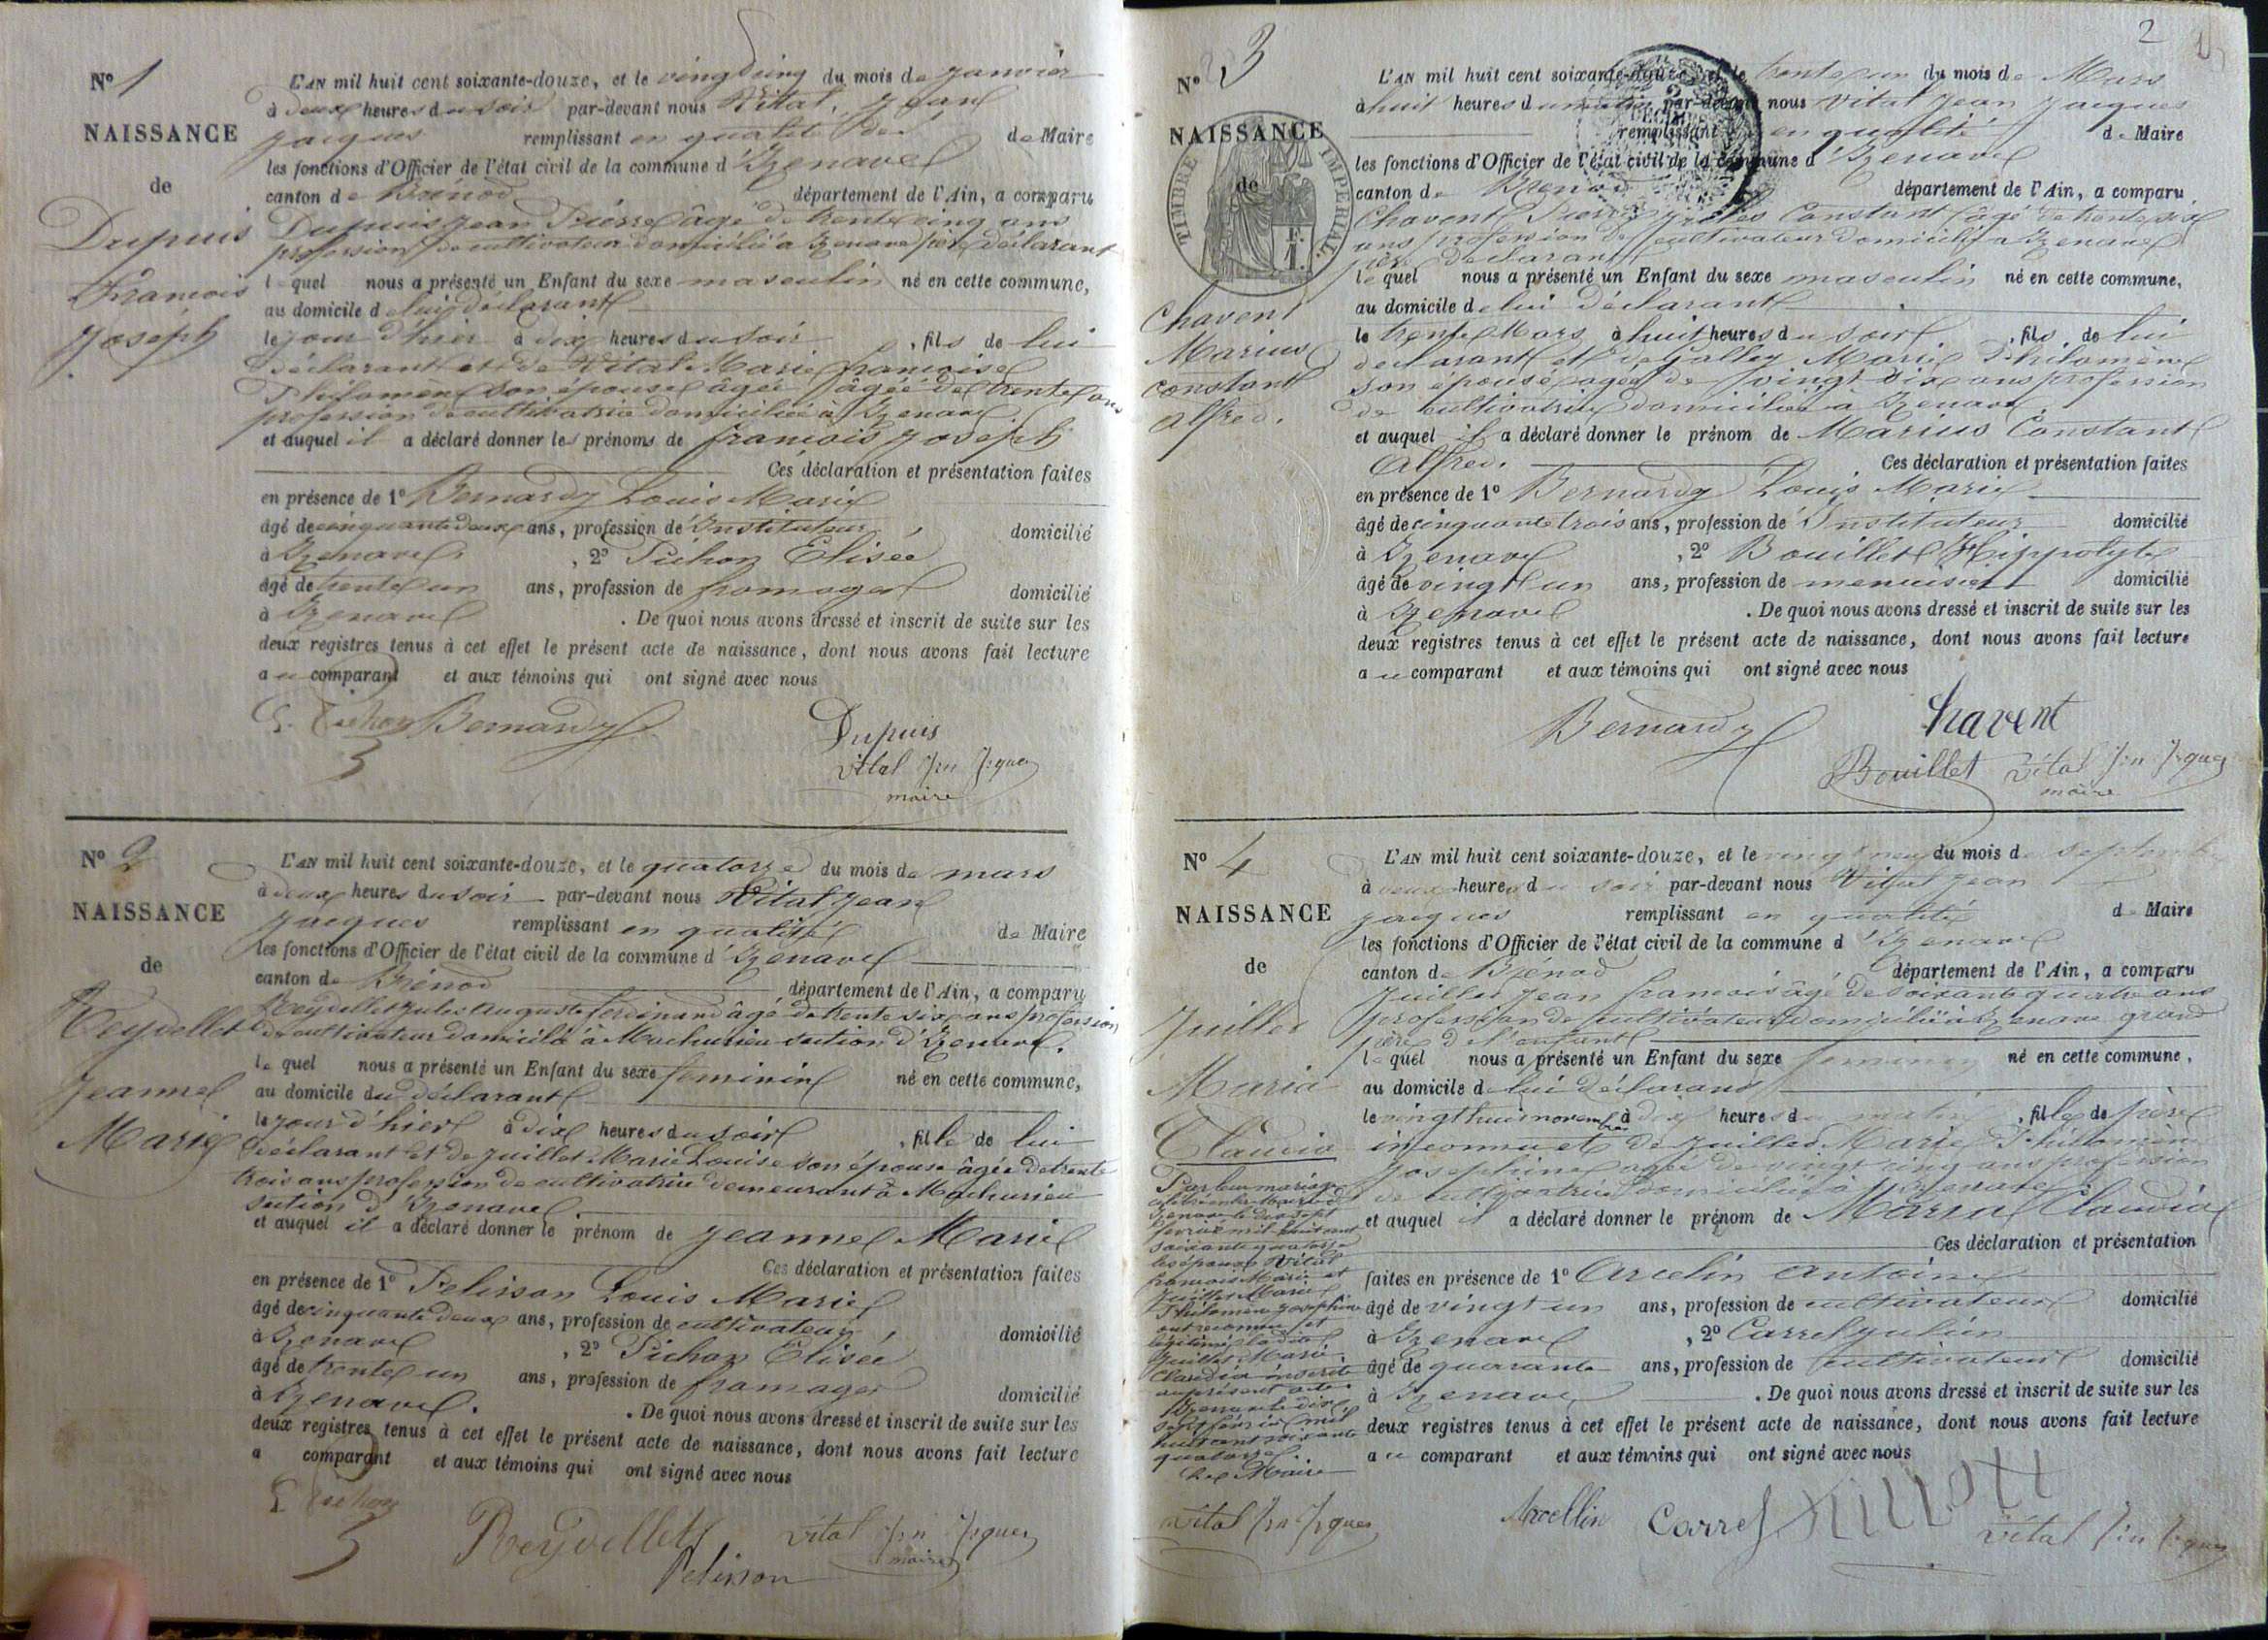 N° 1
NAISSANCE
de
Dupuis
François
Joseph
L'AN mil huit cent soixante-douze, et le du mois de janvier
à deux heures du soir par-devant nous Vital, Jean
Jacques remplissant en qualité de de Maire
les fonctions d'Officier de l'état civil de la commune d'Izenave
canton de Brénod département de l'Ain, a comparu
Dupuis Jean Pierre âgé de trente cinq ans
profession de cultivateur domicilié à Izenave père déclarant
lequel nous a présenté un Enfant du sexe masculin né en cette commune,
au domicile de lui déclarant
le jour d'hier à dix heures du soir , fils de lui
déclarant et de Vital Marie françoise
Philomène son épouse âgée âgée de trente ans
profession de cultivatrice domiciliée à Izenave
et auquel il a déclaré donner les prénoms de françois Joseph
Ces déclaration et présentation faites
en présence de 1° Bernardy Louis Marie
âgé de cinquante deux ans, profession de Instituteur , domicilié
à Izenave , 2° Pichon Elisée
âgé de trente un ans, profession de fromager domicilié
à Izenave . De quoi nous avons dressé et inscrit de suite sur les
deux registres tenus à cet effet le présent acte de naissance, dont nous avons fait lecture
au comparant et aux témoins qui ont signé avec nous
E. Pichon Bernardy Dupuis
Vital Jn Jques
maire
N° 2
NAISSANCE
de
Reydellet
Jeanne
Marie
L'AN mil huit cent soixante-douze, et le quatorze du mois de mars
à deux heures du soir par-devant nous Vital Jean
Jacques remplissant en qualité de Maire
les fonctions d'Officier de l'état civil de la commune d'Izenave
canton de Brénod département de l'Ain, a comparu
Reydellet Jules Auguste ferdinand âgé de trente six ans profession
de cultivateur domicilié à Machurieu section d'Izenave.
lequel nous a présenté un Enfant du sexe feminin né en cette commune,
au domicile du déclarant
le jour d'hier à dix heures du soir , fille de lui
déclarant et de Juillet Marie Louise son épouse âgée de trente
trois ans profession de cultivatrice demeurant à Machurieu
section d'Izenave
et auquel il a déclaré donner le prénom de Jeanne Marie
Ces déclaration et présentation faites
en présence de 1° Pelisson Louis Marie
âgé de cinquante deux ans, profession de cultivateur , domicilié
à Izenave , 2° Pichon Elisée
âgé de trente un ans, profession de fromager domicilié
à Izenave. . De quoi nous avons dressé et inscrit de suite sur les
deux registres tenus à cet effet le présent acte de naissance, dont nous avons fait lecture
a comparant et aux témoins qui ont signé avec nous
E. Pichon
Reydellet Vital Jn Jques
maire
Pelisson
2
N° 3
NAISSANCE
de
TIMBRE IMPERIAL.
Chavent
Marius
Constant
Alfred.
L'AN mil huit cent soixante-douze, et le trente un du mois de Mars
à huit heures du matin par-devant nous Vital Jean Jacques
remplissant en qualité de Maire
les fonctions d'Officier de l'état civil de la commune d'Izenave
canton de Brenod département de l'Ain, a comparu
Chavent Constant âgé de trente six
ans profession de cultivateur domicilié à Izenave
père déclarant
lequel nous a présenté un Enfant du sexe masculin né en cette commune,
au domicile de lui déclarant
le trente Mars à huit heures du soir , fils de lui
déclarant et de Galley Marie Philomène
son épouse âgée de vingt six ans profession
de cultivatrice domiciliée à Izenave
et auquel il a déclaré donner le prénom de Marius Constant
Alfred. Ces déclaration et présentation faites
en présence de 1° Bernardy Louis Marie
âgé de cinquante trois ans, profession de Instituteur domicilié
à Izenave , 2° Bouillet Hippolyte
âgé de vingt un ans, profession de menuisier domicilié
à Izenave . De quoi nous avons dressé et inscrit de suite sur les
deux registres tenus à cet effet le présent acte de naissance, dont nous avons fait lecture
au comparant et aux témoins qui ont signé avec nous
Bernardy Chavent
Bouillet Vital Jn Jques
maire
N° 4
NAISSANCE
de
Juillet
Maria
Claudia
Par leur mariage
février mil huit cent
soixante quatorze
les époux Vital
françois Marie et
Juillet Marie
Philomène Josephine
ont reconnu et
légitimé la dite
Juillet Maria
Claudia inscrite
au présent acte
Izenave le dix
sept février mil
huit cent soixante
quatorze.
Le Maire
Vital Jn Jques
L'AN mil huit cent soixante-douze, et le vingt neuf du mois de
à deux heures du soir par-devant nous Vital Jean
Jacques remplissant en qualité de Maire
les fonctions d'Officier de l'état civil de la commune d'Izenave
canton de Brénod département de l'Ain, a comparu
Juillet Jean françois âgé de soixante quatre ans
profession de cultivateur domicilié à Izenave grand
père de l'enfant
lequel nous a présenté un Enfant du sexe feminin né en cette commune,
au domicile de lui déclarant
le vingt huit novembre à dix heures du matin , fille de père
inconnu et de Juillet Marie Philomène
Josephine âgée de vingt cinq ans profession
de cultivatrice domiciliée à Izenave
et auquel il a déclaré donner le prénom de Maria Claudia
Ces déclaration et présentation
faites en présence de 1° Arcelin Antoine
âgé de vingt un ans, profession de cultivateur domicilié
à Izenave , 2° Carrel Julien
âgé de quarante ans, profession de cultivateur domicilié
à Izenave . De quoi nous avons dressé et inscrit de suite sur les
deux registres tenus à cet effet le présent acte de naissance, dont nous avons fait lecture
au comparant et aux témoins qui ont signé avec nous
Arcellin Carrel Vital Jn Jques